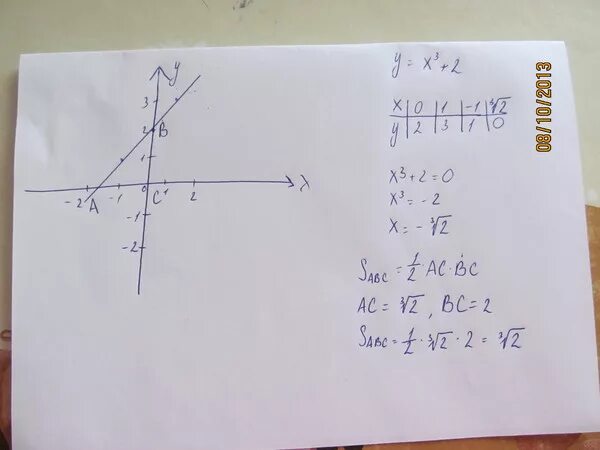 y
3
2 B
1
-2 A -1 0 C 1 2 x
-1
-2
y = x³+2
x | 0 | 1 | -1 | ∛2
y | 2 | 3 | 1 | 0
x³+2=0
x³= -2
x= -∛2
S_ABC = 1/2 · AC · BC
AC = ∛2, BC=2
S_ABC = 1/2 · ∛2 · 2 = ∛2
08/10/2013